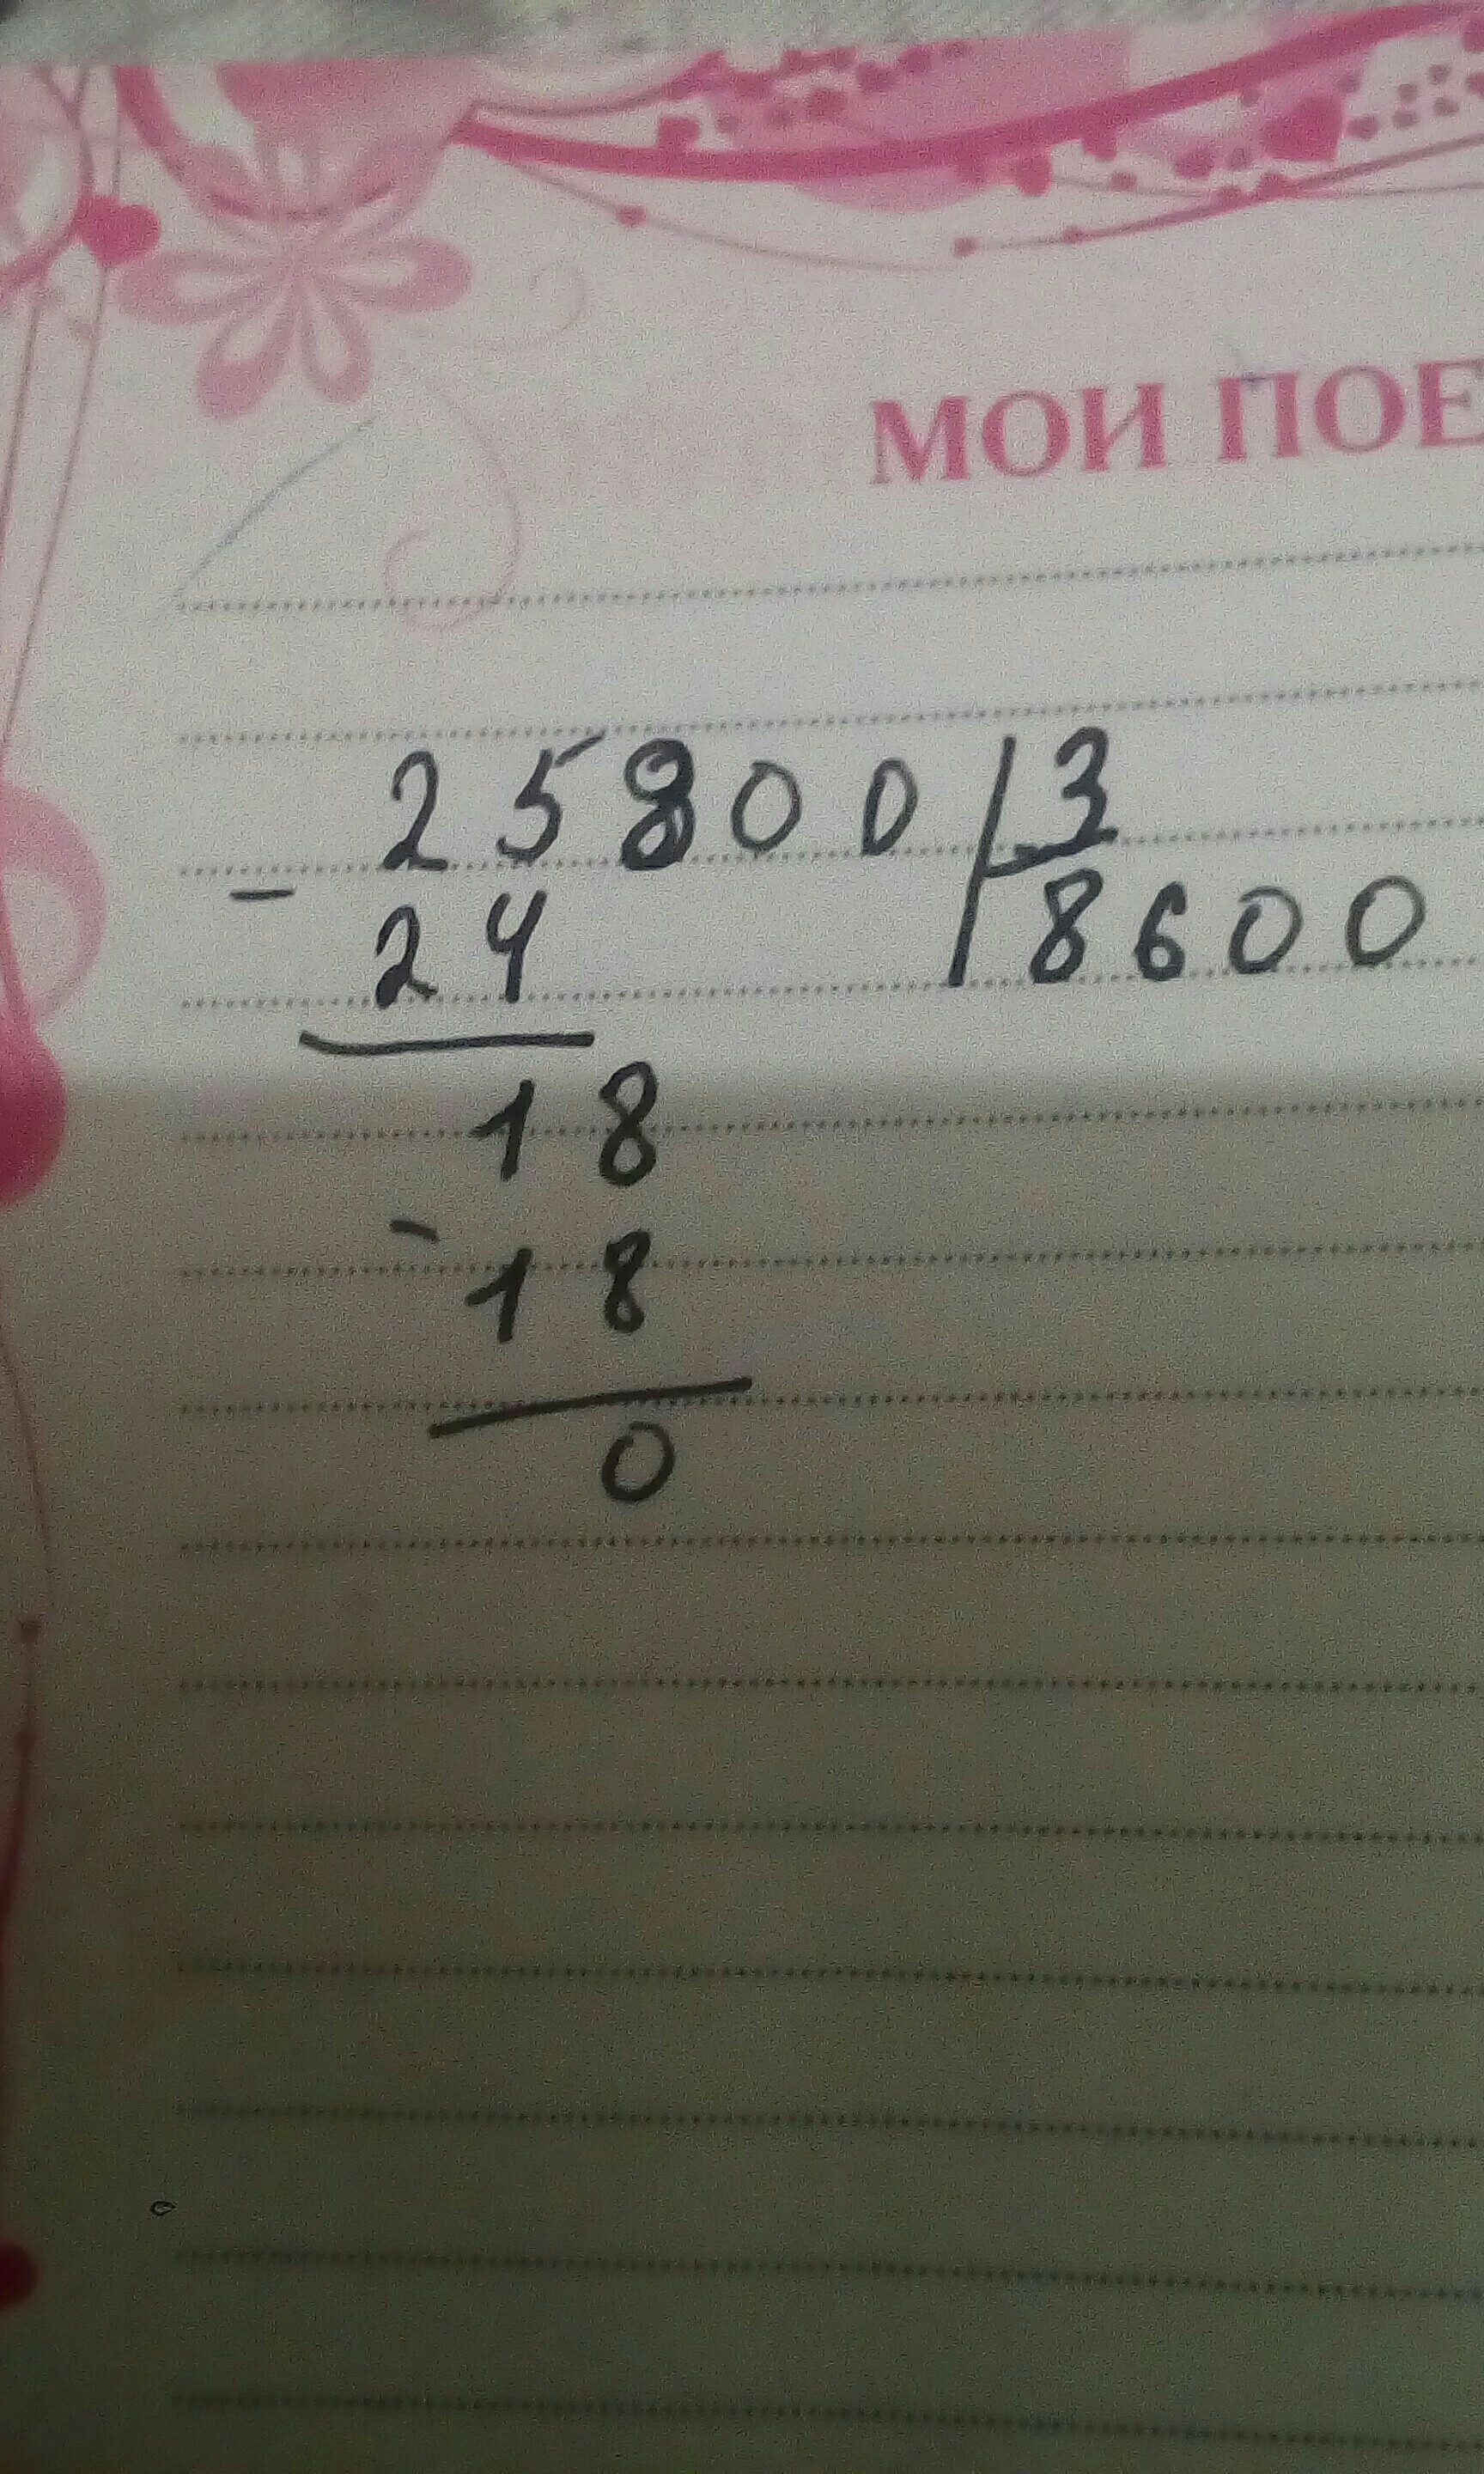 МОИ ПОЕ
25800 3
- 24 8600
18
- 18
0